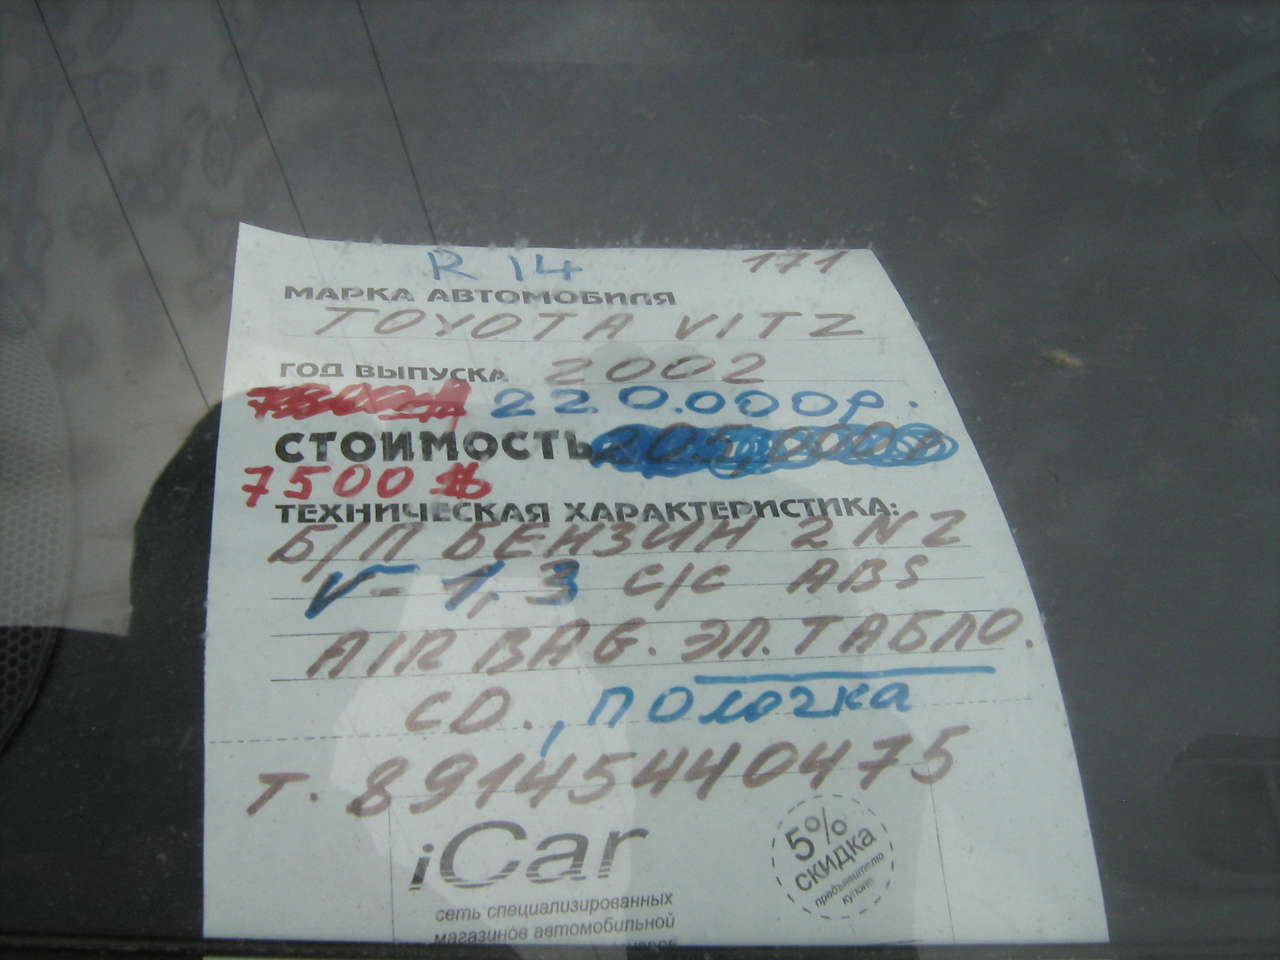 R 14 171
МАРКА АВТОМОБИЛЯ
TOYOTA VITZ
ГОД ВЫПУСКА 2002
220.000р.
СТОИМОСТЬ 205,000р
7500 $
ТЕХНИЧЕСКАЯ ХАРАКТЕРИСТИКА:
Б/П БЕНЗИН 2NZ
V-1,3 C/C ABS
AIRBAG. ЭЛ. ТАБЛО.
CD., полочка
Т. 89145440475
iCar
5%
СКИДКА
предъявителю
купона
сеть специализированных
магазинов автомобильной